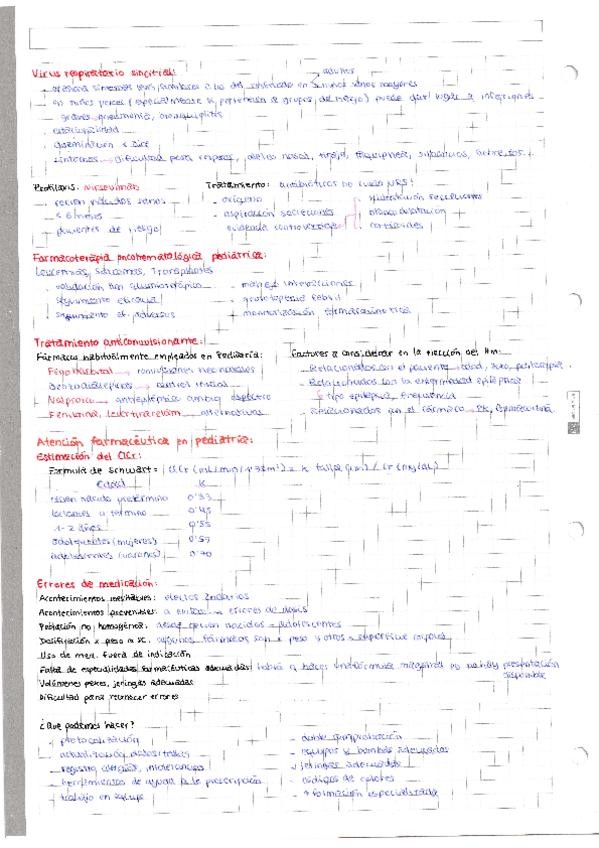 Virus respiratorio sincitial:
adultos
en niños peques (especialmente
graves: pneumonía, bronquiolitis
estacionalidad
Síntomas → dificultad para respirar, aleteo nasal, tiraje, taquipnea, sibilancias,
Profilaxis: nirsevimab
- recién nacidos sanos
< 6 meses
- pacientes de riesgo
Tratamiento: antibióticos no curan VRS!
- oxígeno
- aspiración secreciones
- evidencia controvertida
broncodilatación
corticoides
Farmacoterapia oncohematológica pediátrica:
Leucemias, Sarcomas, Transplantes
- validación tto quimioterápico
- seguimiento eficacia
- seguimiento ef. adversos
- manejo interacciones
- profilaxis
- monitorización farmacocinética
Tratamiento anticonvulsionante:
Fármacos habitualmente empleados en Pediatría:
Fenobarbital → convulsiones neonatales
Benzodiacepinas → control inicial
Valproico → antiepiléptico amplio espectro
Fenitoína, levetiracetam → alternativas
Factores a considerar en la elección del tto:
- Relacionados con el paciente → edad, sexo,
- Relacionados con la enfermedad epiléptica
↳ tipo epilepsia, frecuencia
- Relacionados con el fármaco → PK,
Atención farmacéutica en pediatría:
Estimación del ClCr:
Fórmula de Schwart = ClCr (mL/min/1'73m²) = k · talla (cm) / Cr (mg/dL)
Edad K
recién nacido pretérmino 0'33
lactantes a término 0'45
1-2 años 0'55
adolescentes (mujeres) 0'57
adolescentes (varones) 0'70
Errores de medicación:
Acontecimientos inevitables: efectos 2ndarios
Acontecimientos prevenibles: a evitar → errores de dosis
Población no homogénea: desde recién nacidos → adolescentes
Dosificación x peso o SC: algunos fármacos son x peso y otros x superficie corporal
Uso de med. fuera de indicación
Falta de especialidades farmacéuticas adecuadas: habrá q hacer una fórmula magistral pq no hay presentación
disponible
Volúmenes peques, jeringas adecuadas
Dificultad para reconocer errores
¿Qué podemos hacer?
- protocolización
- actualización dosis
- registro alergias, intolerancias
- herramientas de ayuda a la prescripción
- trabajo en equipo
- doble comprobación
- equipos y bombas adecuadas
- jeringas adecuadas
- códigos de colores
- + formación especializada